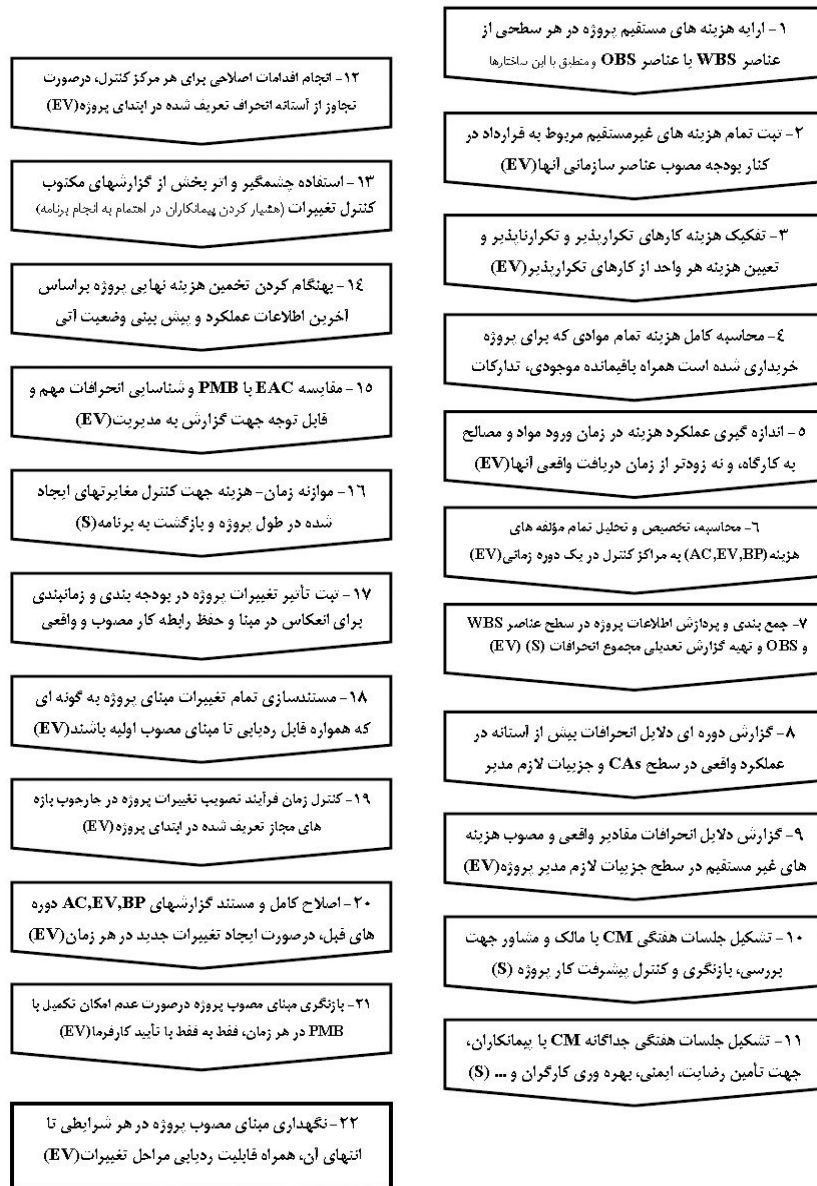 ۱- ارایه هزینه های مستقیم پروژه در هر سطحی از
عناصر WBS یا عناصر OBS و منطبق با این ساختارها
۲- ثبت تمام هزینه های غیرمستقیم مربوط به قرارداد در
کنار بودجه مصوب عناصر سازمانی آنها(EV)
۳- تفکیک هزینه کارهای تکرارپذیر و تکرارناپذیر و
تعیین هزینه هر واحد از کارهای تکرارپذیر(EV)
٤- محاسبه کامل هزینه تمام موادی که برای پروژه
خریداری شده است همراه باقیمانده موجودی، تدارکات
٥- اندازه گیری عملکرد هزینه در زمان ورود مواد و مصالح
به کارگاه، و نه زودتر از زمان دریافت واقعی آنها(EV)
٦- محاسبه، تخصیص و تحلیل تمام مؤلفه های
هزینه(AC,EV,BP) به مراکز کنترل در یک دوره زمانی(EV)
۷- جمع بندی و پردازش اطلاعات پروژه در سطح عناصر WBS
و OBS و تهیه گزارش تعدیلی مجموع انحرافات (S) (EV)
۸- گزارش دوره ای دلایل انحرافات بیش از آستانه در
عملکرد واقعی در سطح CAs و جزییات لازم مدیر
۹- گزارش دلایل انحرافات مقادیر واقعی و مصوب هزینه
های غیر مستقیم در سطح جزییات لازم مدیر پروژه(EV)
۱۰- تشکیل جلسات هفتگی CM با مالک و مشاور جهت
بررسی، بازنگری و کنترل پیشرفت کار پروژه (S)
۱۱- تشکیل جلسات هفتگی جداگانه CM با پیمانکاران،
جهت تأمین رضایت، ایمنی، بهره وری کارگران و ... (S)
۱۲- انجام اقدامات اصلاحی برای هر مرکز کنترل، درصورت
تجاوز از آستانه انحراف تعریف شده در ابتدای پروژه(EV)
۱۳- استفاده چشمگیر و اثر بخش از گزارشهای مکتوب
کنترل تغییرات (هشیار کردن پیمانکاران در اهتمام به انجام برنامه)
۱٤- بهنگام کردن تخمین هزینه نهایی پروژه براساس
آخرین اطلاعات عملکرد و پیش بینی وضعیت آتی
۱٥- مقایسه EAC با PMB و شناسایی انحرافات مهم و
قابل توجه جهت گزارش به مدیریت(EV)
۱٦- موازنه زمان- هزینه جهت کنترل مغایرتهای ایجاد
شده در طول پروژه و بازگشت به برنامه(S)
۱۷- ثبت تأثیر تغییرات پروژه در بودجه بندی و زمانبندی
برای انعکاس در مبنا و حفظ رابطه کار مصوب و واقعی
۱۸- مستندسازی تمام تغییرات مبنای پروژه به گونه ای
که همواره قابل ردیابی تا مبنای مصوب اولیه باشند(EV)
۱۹- کنترل زمان فرآیند تصویب تغییرات پروژه در چارچوب بازه
های مجاز تعریف شده در ابتدای پروژه(EV)
۲۰- اصلاح کامل و مستند گزارشهای AC,EV,BP دوره
های قبل، درصورت ایجاد تغییرات جدید در هر زمان(EV)
۲۱- بازنگری مبنای مصوب پروژه درصورت عدم امکان تکمیل با
PMB در هر زمان، فقط به فقط با تأیید کارفرما(EV)
۲۲- نگهداری مبنای مصوب پروژه در هر شرایطی تا
انتهای آن، همراه قابلیت ردیابی مراحل تغییرات(EV)